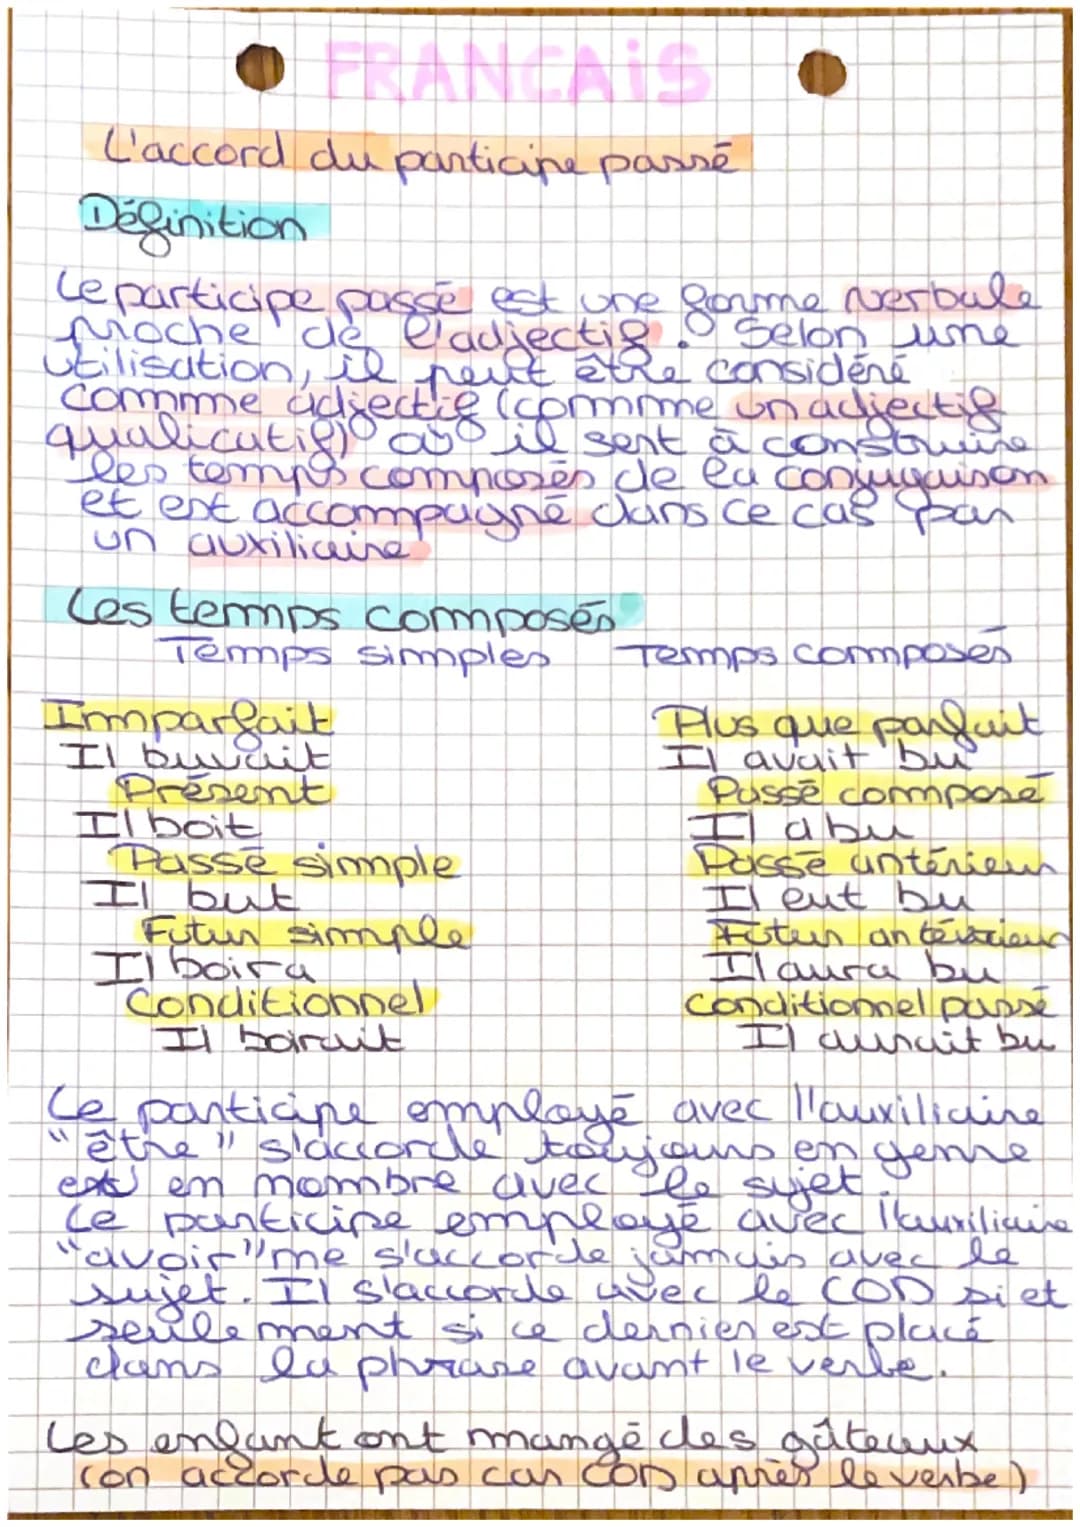 FRANCAiS
L'accord du participe passé
Définition
Le participe passé est une forme verbale
proche de l'adjectif. Selon une
utilisation, il peut être considéré
comme adjectif (comme un adjectif
qualicatif) où il sert à construire
les temps composés de la conjugaison
et est accompagné dans ce cas par
un auxiliaire
Les temps composés
Temps simples Temps composés
Imparfait Plus que parfait
Il buvait Il avait bu
Présent Passé composé
Il boit Il a bu
Passé simple Passé antérieur
Il but Il eut bu
Futur simple Futur antérieur
Il boira Il aura bu
Conditionnel Conditionnel passé
Il boirait Il aurait bu
Le participe employé avec l'auxiliaire
"être" s'accorde toujours en genre
et en nombre avec le sujet.
Le participe employé avec l'auxiliaire
"avoir" ne s'accorde jamais avec le
sujet. Il s'accorde avec le COD si et
seulement si ce dernier est placé
dans la phrase avant le verbe.
Les enfant ont mangé des gâteaux
(on accorde pas car COD après le verbe)